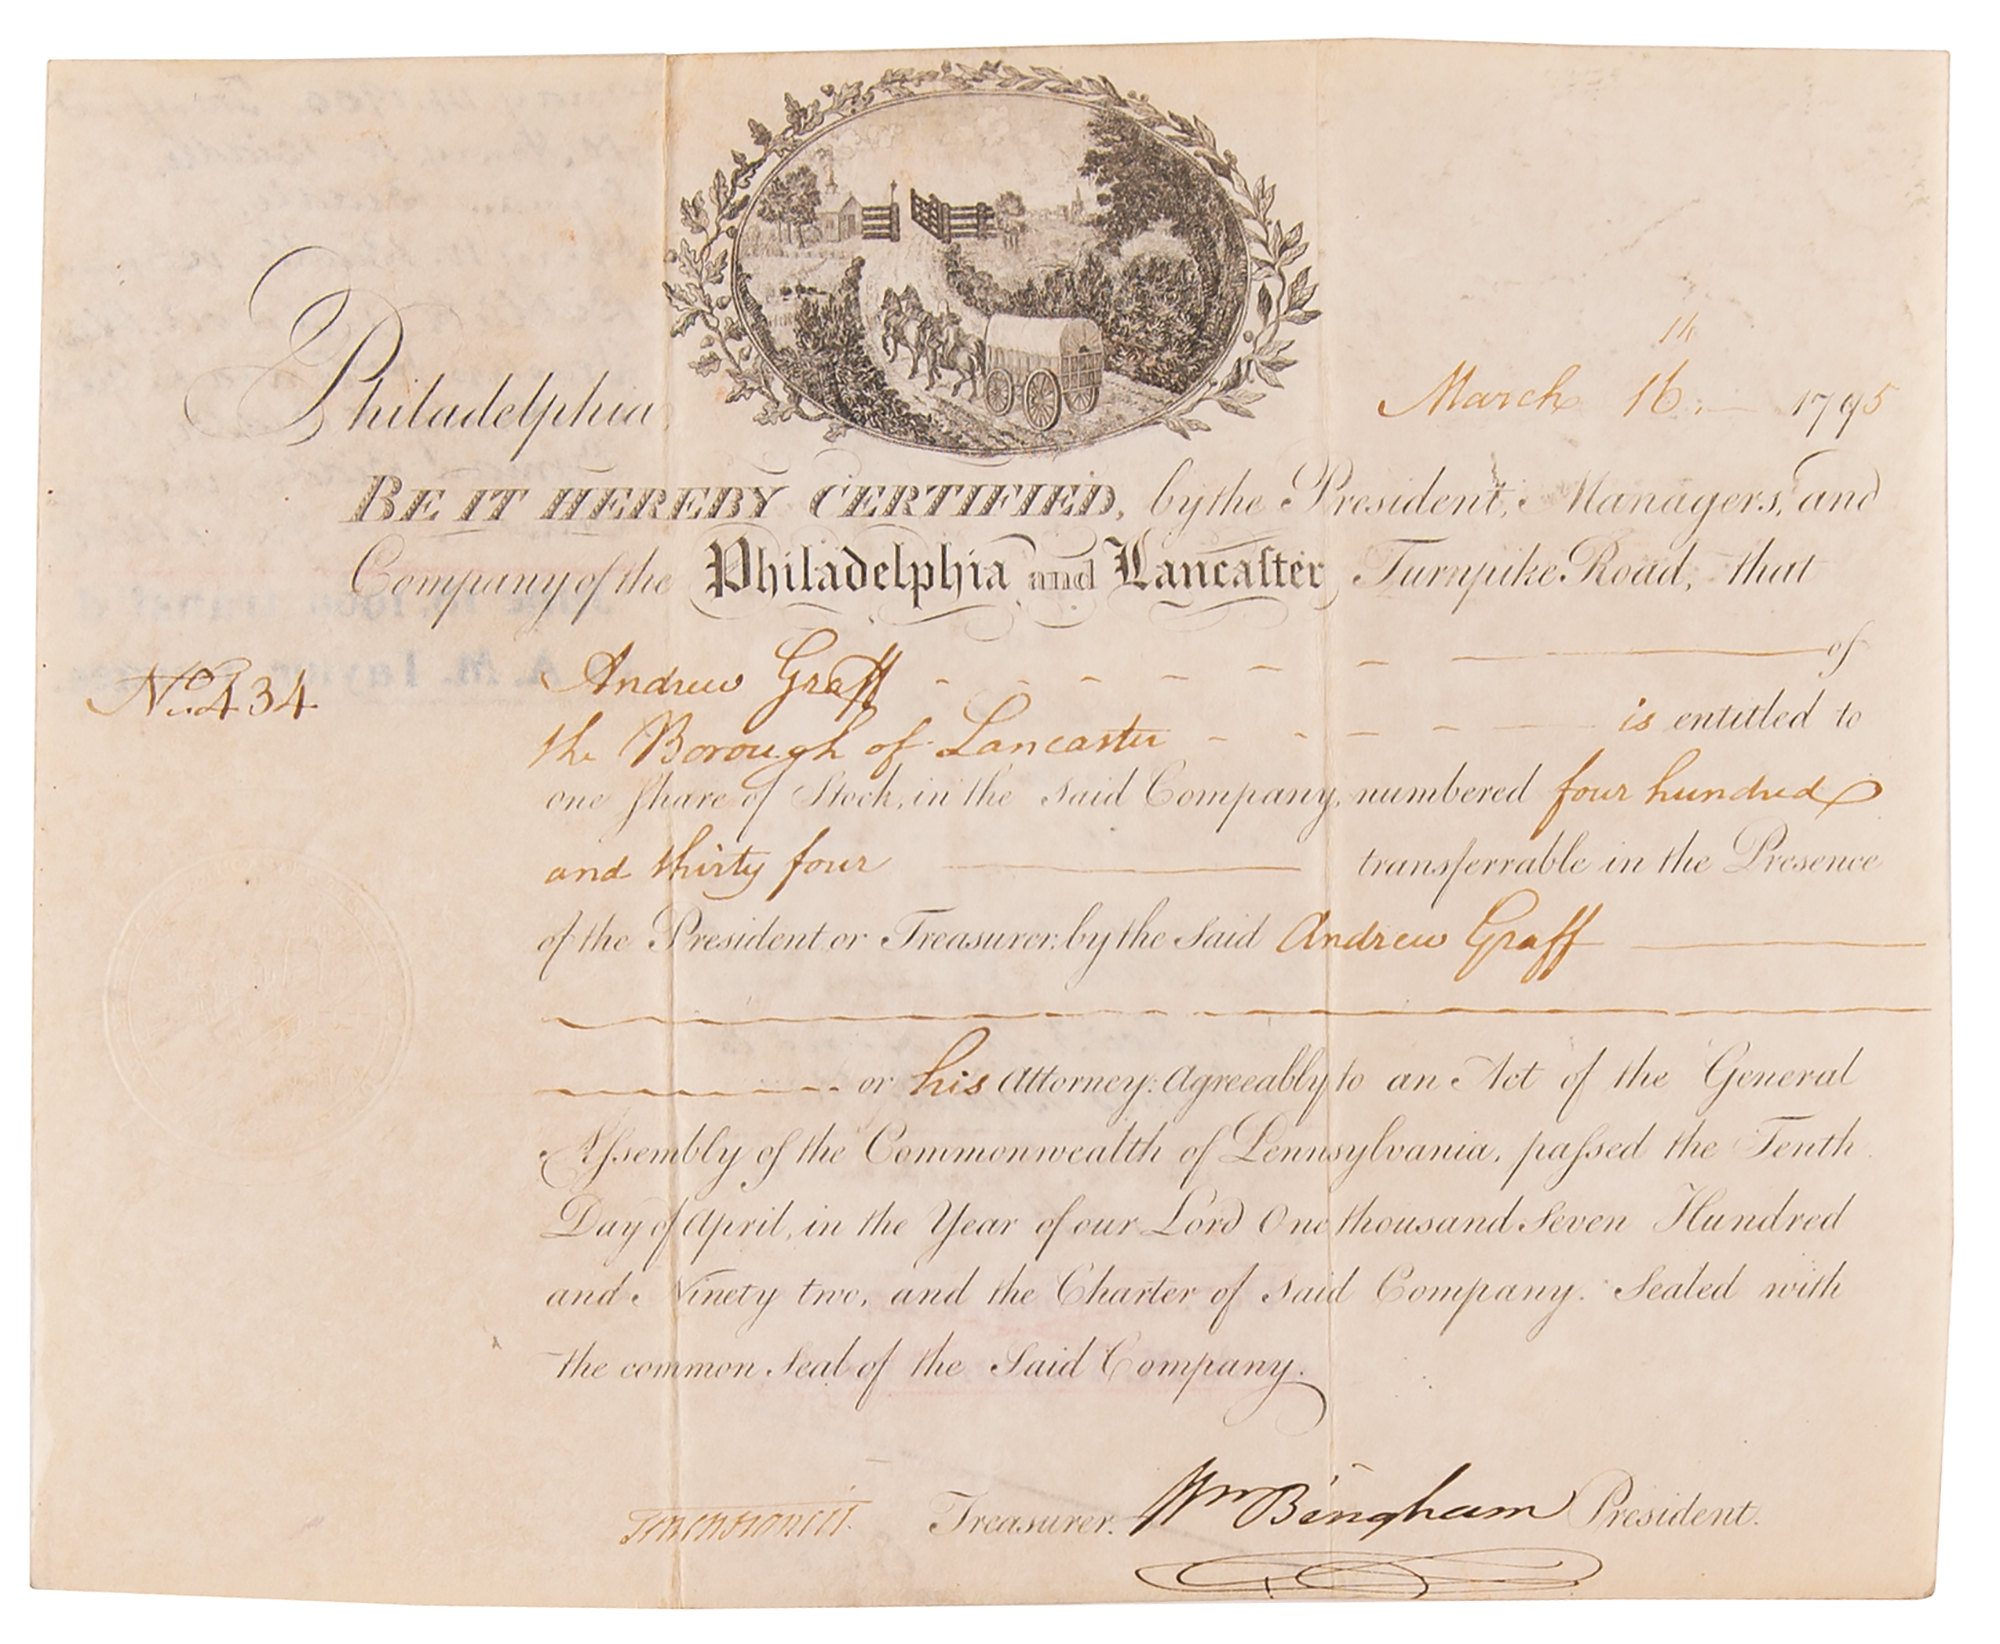 Philadelphia, March 16th 1795
BE IT HEREBY CERTIFIED, by the President, Managers, and
Company of the Philadelphia and Lancaster Turnpike Road, that
No. 434 Andrew Graff of
the Borough of Lancaster is entitled to
one Share of Stock, in the said Company, numbered four hundred
and thirty four transferrable in the Presence
of the President or Treasurer by the said Andrew Graff
or his Attorney: Agreeably to an Act of the General
Assembly of the Commonwealth of Pennsylvania, passed the Tenth
Day of April, in the Year of our Lord One thousand Seven Hundred
and Ninety two, and the Charter of said Company. Sealed with
the common Seal of the Said Company.
Treasurer. Wm Bingham President.